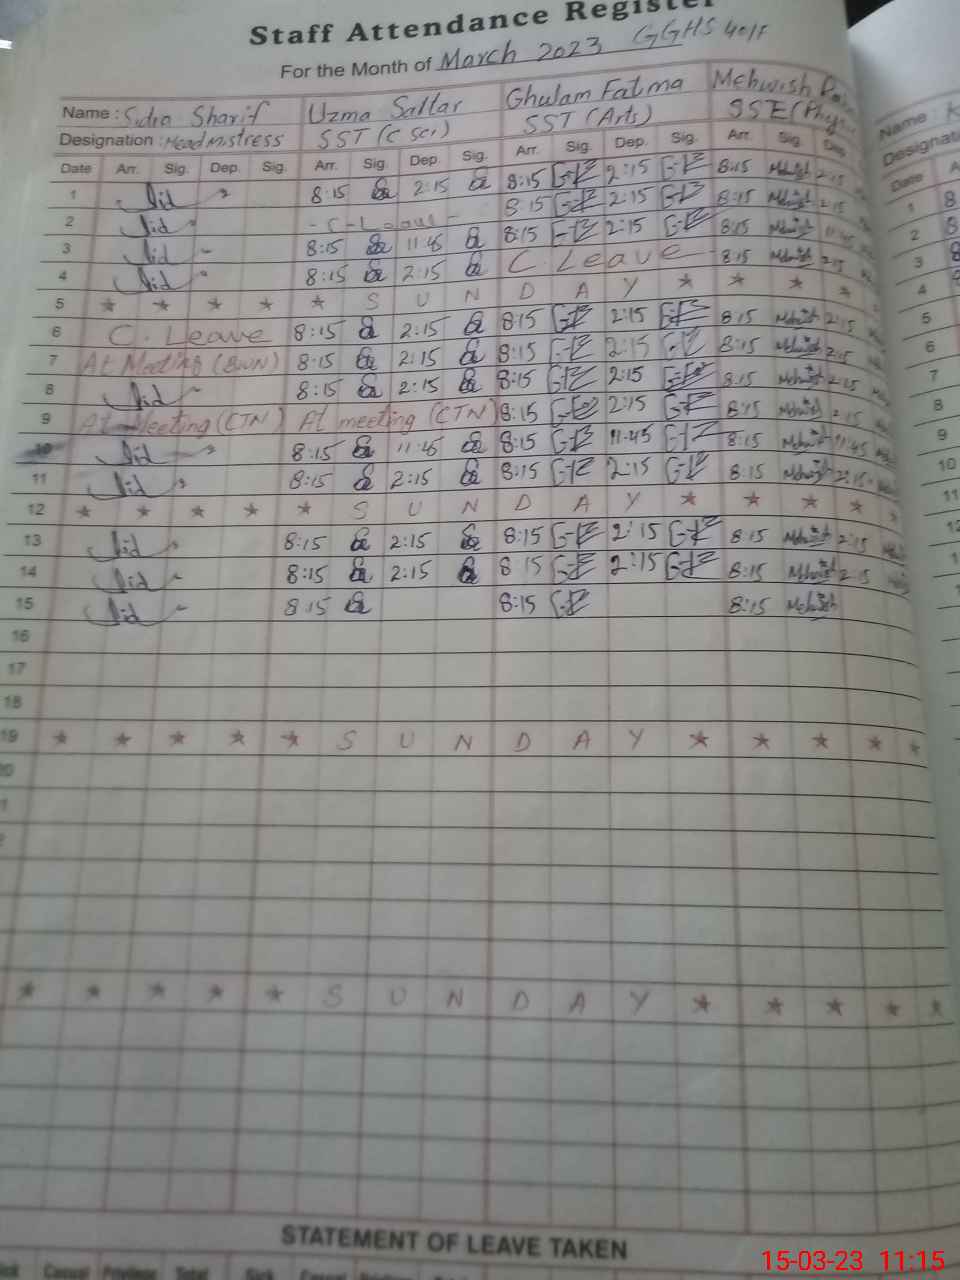 Staff Attendance Register
For the Month of March 2023 GGHS 40/F
Name : Sidra Sharif Uzma Sattar Ghulam Fatima Mehwish
Designation : Headmistress SST (C Sci) SST (Arts) SSE (Physi
Date Arr. Sig. Dep. Sig. Arr. Sig. Dep. Sig. Arr. Sig. Dep. Sig. Arr. Sig. Dep
1 8:15 2:15 8:15 2:15 8:15 Mehwish 2:15
2 - C - Leave - 8:15 2:15 8:15 Mehwish 2:15
3 8:15 11:45 8:15 2:15 8:15 Mehwish 11:45
4 8:15 2:15 C. Leave 8:15 Mehwish 2:15
5 * * * * * S U N D A Y * * * *
6 C. Leave 8:15 2:15 8:15 2:15 8:15 Mehwish 2:15
7 At Meeting (BWN) 8:15 2:15 8:15 2:15 8:15 Mehwish 2:15
8 8:15 2:15 8:15 2:15 8:15 Mehwish 2:15
9 At Meeting (CTN) At meeting (CTN) 8:15 2:15 8:15 Mehwish 2:15
10 8:15 11:45 8:15 11:45 8:15 Mehwish 11:45
11 8:15 2:15 8:15 2:15 8:15 Mehwish 2:15
12 * * * * * S U N D A Y * * * * *
13 8:15 2:15 8:15 2:15 8:15 Mehwish 2:15
14 8:15 2:15 8:15 2:15 8:15 Mehwish 2:15
15 8:15 8:15 8:15 Mehwish
16
17
18
19 * * * * * S U N D A Y * * * * *
* * * * * S U N D A Y * * * * *
STATEMENT OF LEAVE TAKEN
Casual Total Sick Casual
Name :
Designati
Date
1 8
2 8
3 8
4
5
6
7
8
9
10
11
12
15-03-23 11:15